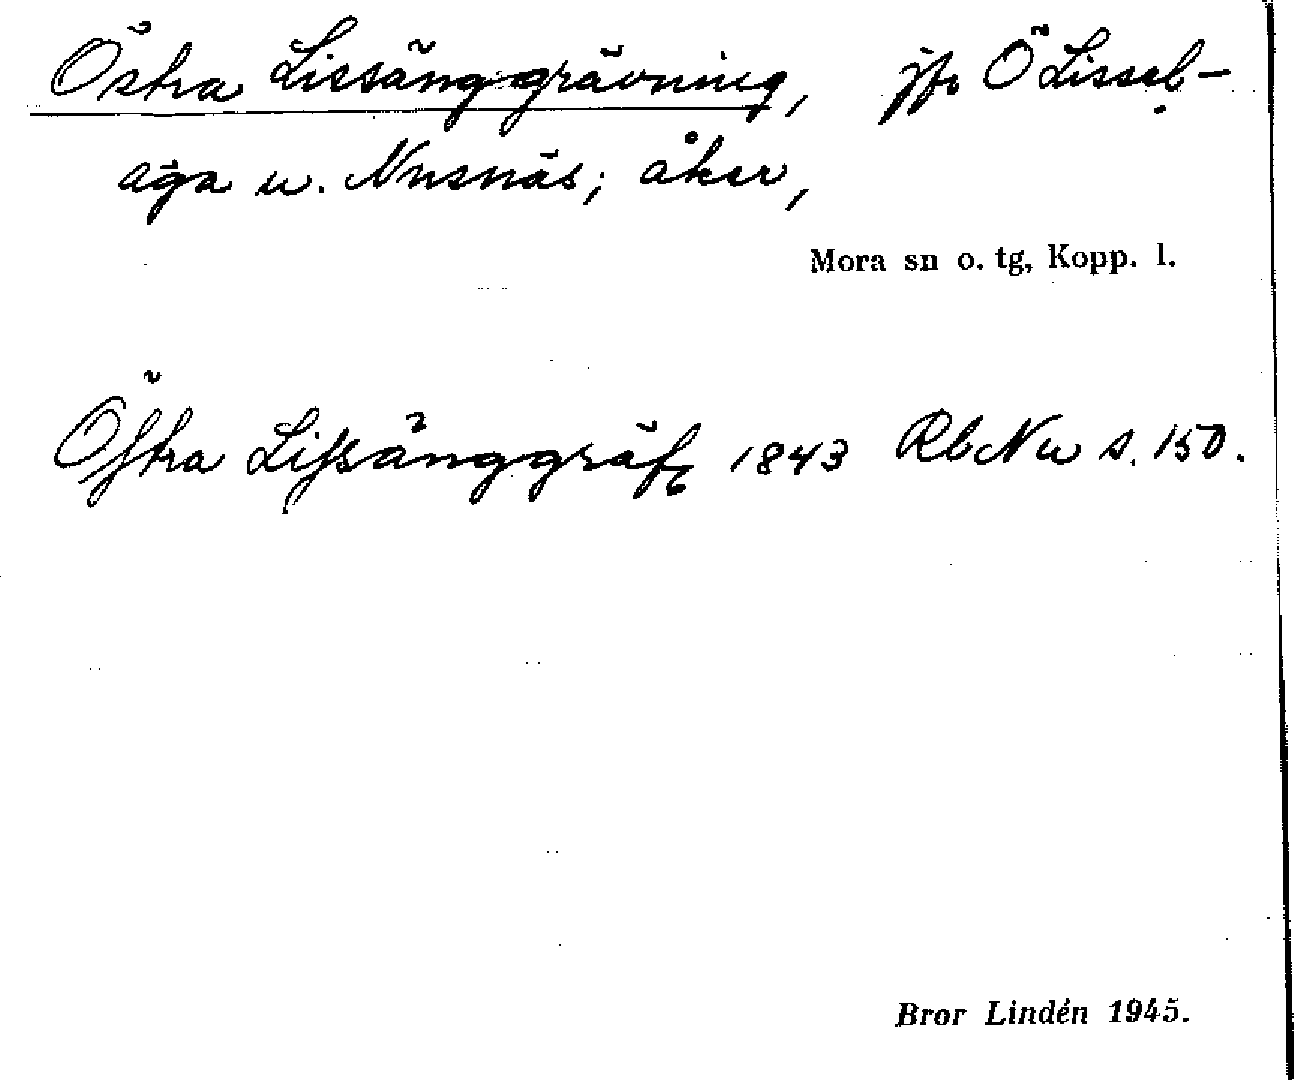 Östra Lissänggrävning, jfr Ö Lissel-
äga u. Nusnäs; åker,
Mora sn o. tg, Kopp. l.
Östra Lissänggräf 1843 RbNu s. 150.
Bror Lindén 1945.